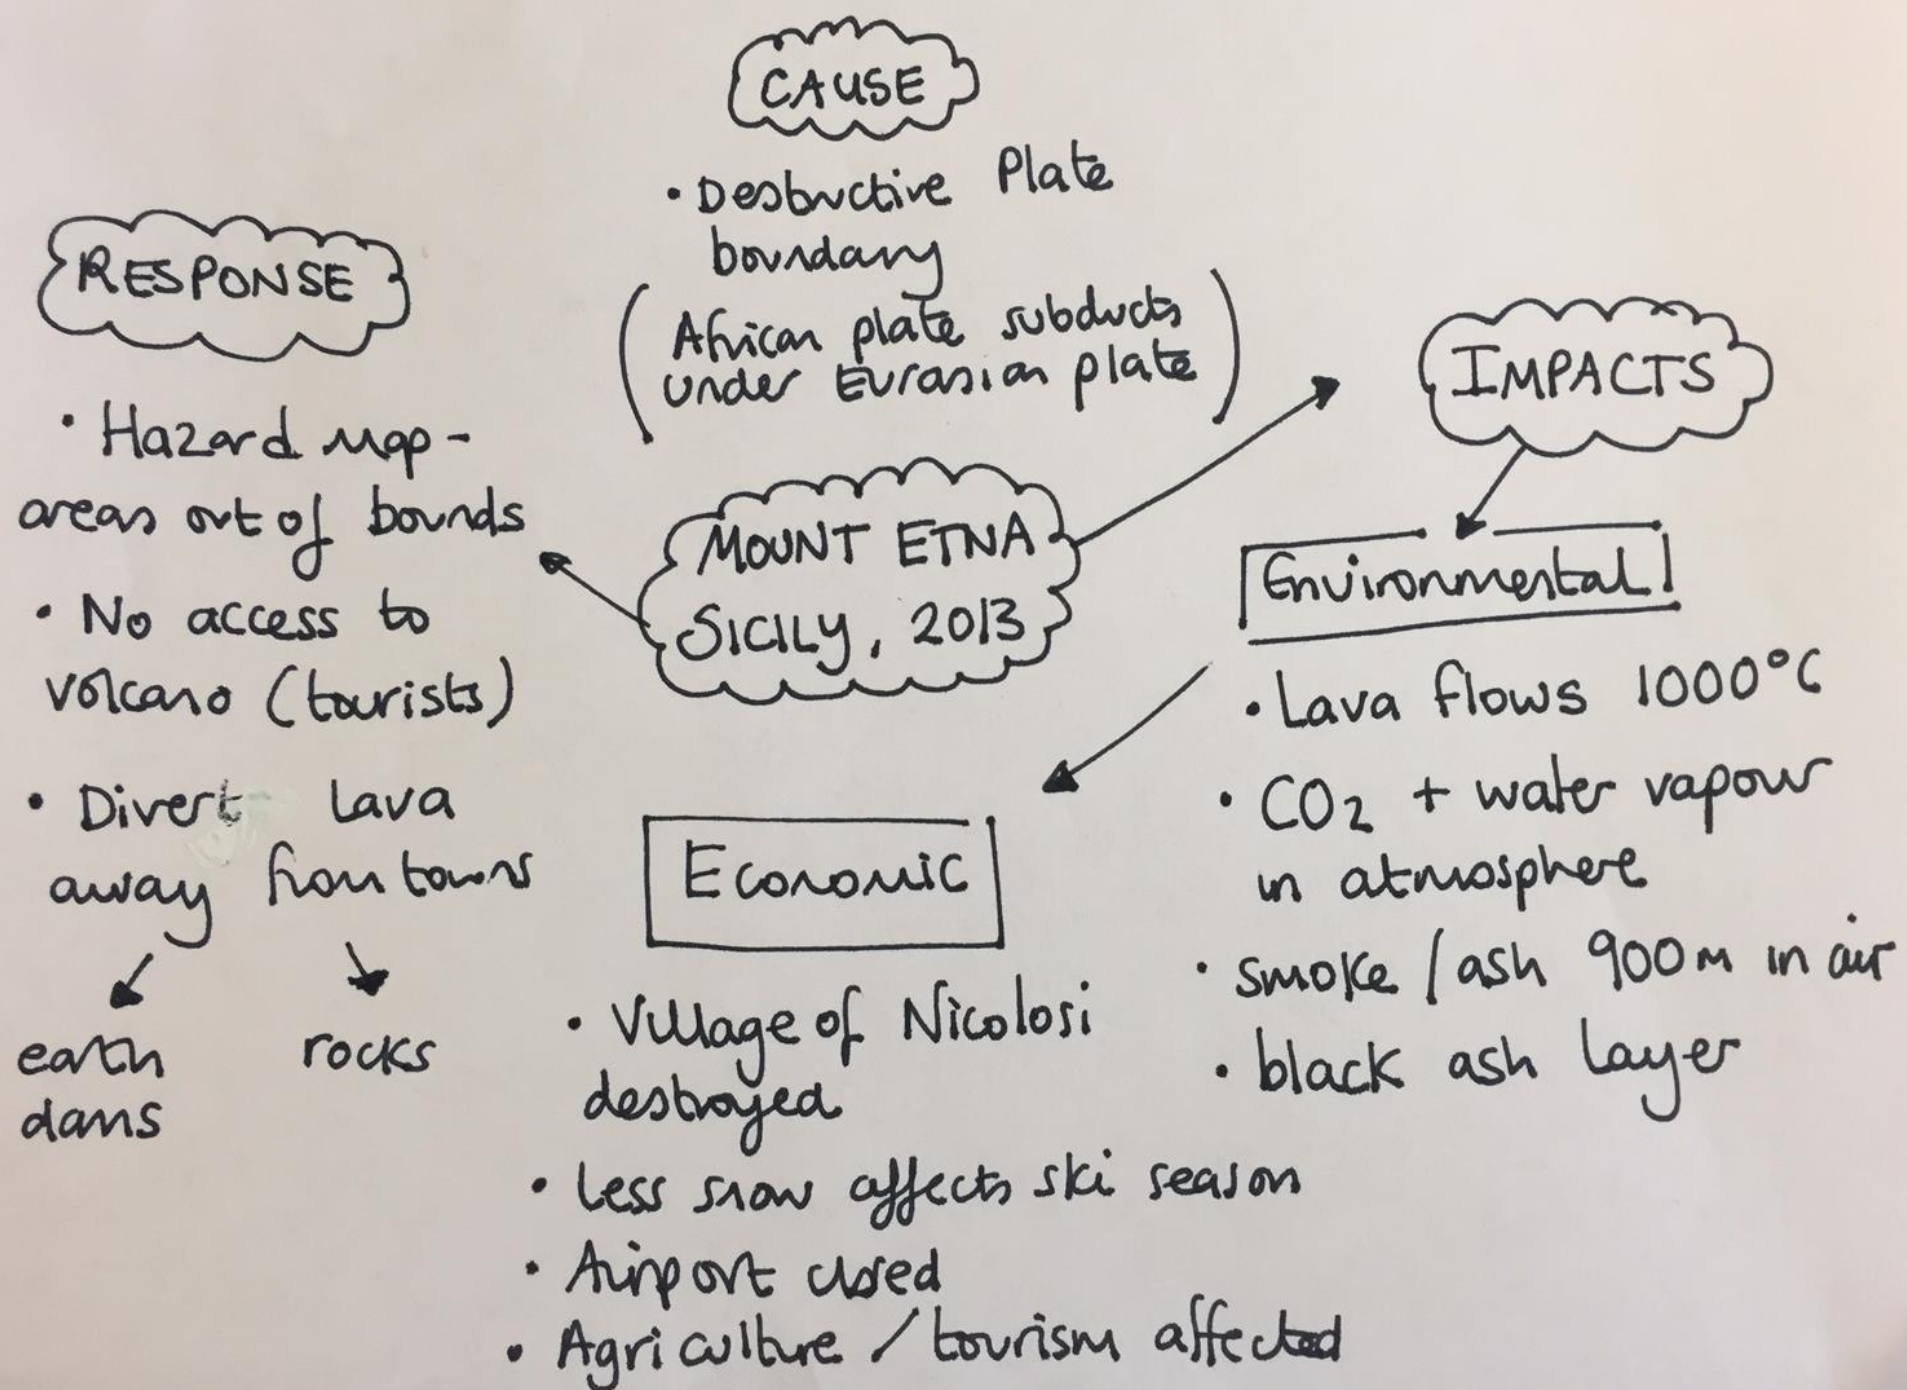 CAUSE
• Destructive Plate
boundary
(African plate subducts
under Eurasian plate)
RESPONSE
• Hazard map -
areas out of bounds
• No access to
volcano (tourists)
• Divert lava
away from towns
earth
dams
rocks
MOUNT ETNA
SICILY, 2013
IMPACTS
Environmental
• Lava flows 1000°C
• CO2 + water vapour
in atmosphere
• smoke / ash 900m in air
• black ash layer
Economic
• Village of Nicolosi
destroyed
• Less snow affects ski season
• Airport closed
• Agriculture / tourism affected